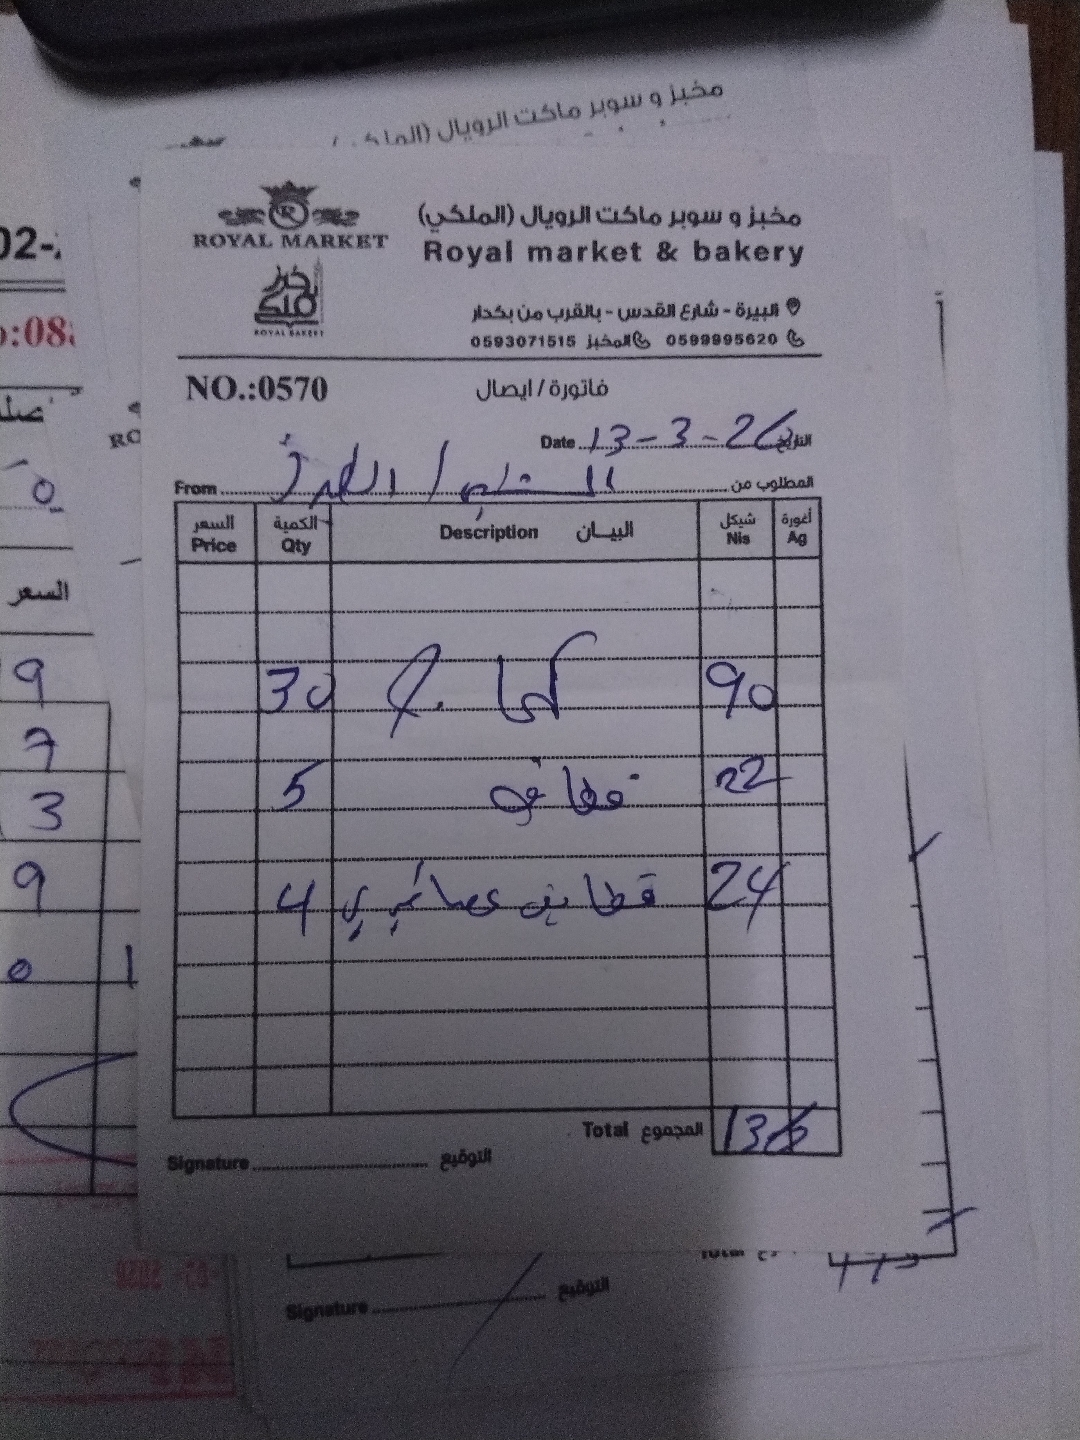 مخبز و سوبر ماكت الرويال (الملكي)
ROYAL MARKET
مخبز و سوبر ماكت الرويال (الملكي)
Royal market & bakery
ROYAL BAKERY
البيرة - شارع القدس - بالقرب من بكدار
0599995620 المخبز 0593071515
NO.:0570
فاتورة / ايصال
Date 13-3-26 التاريخ
From المطلوب من
السعر الكمية البيـــان شيكل أغورة
Price Qty Description Nis Ag
30 90
5 قطايف 22
4 قطايف عصافيري 24
Total المجموع 136
Signature التوقيع
02-
:08
السعر
9
7
3
9
Signature التوقيع